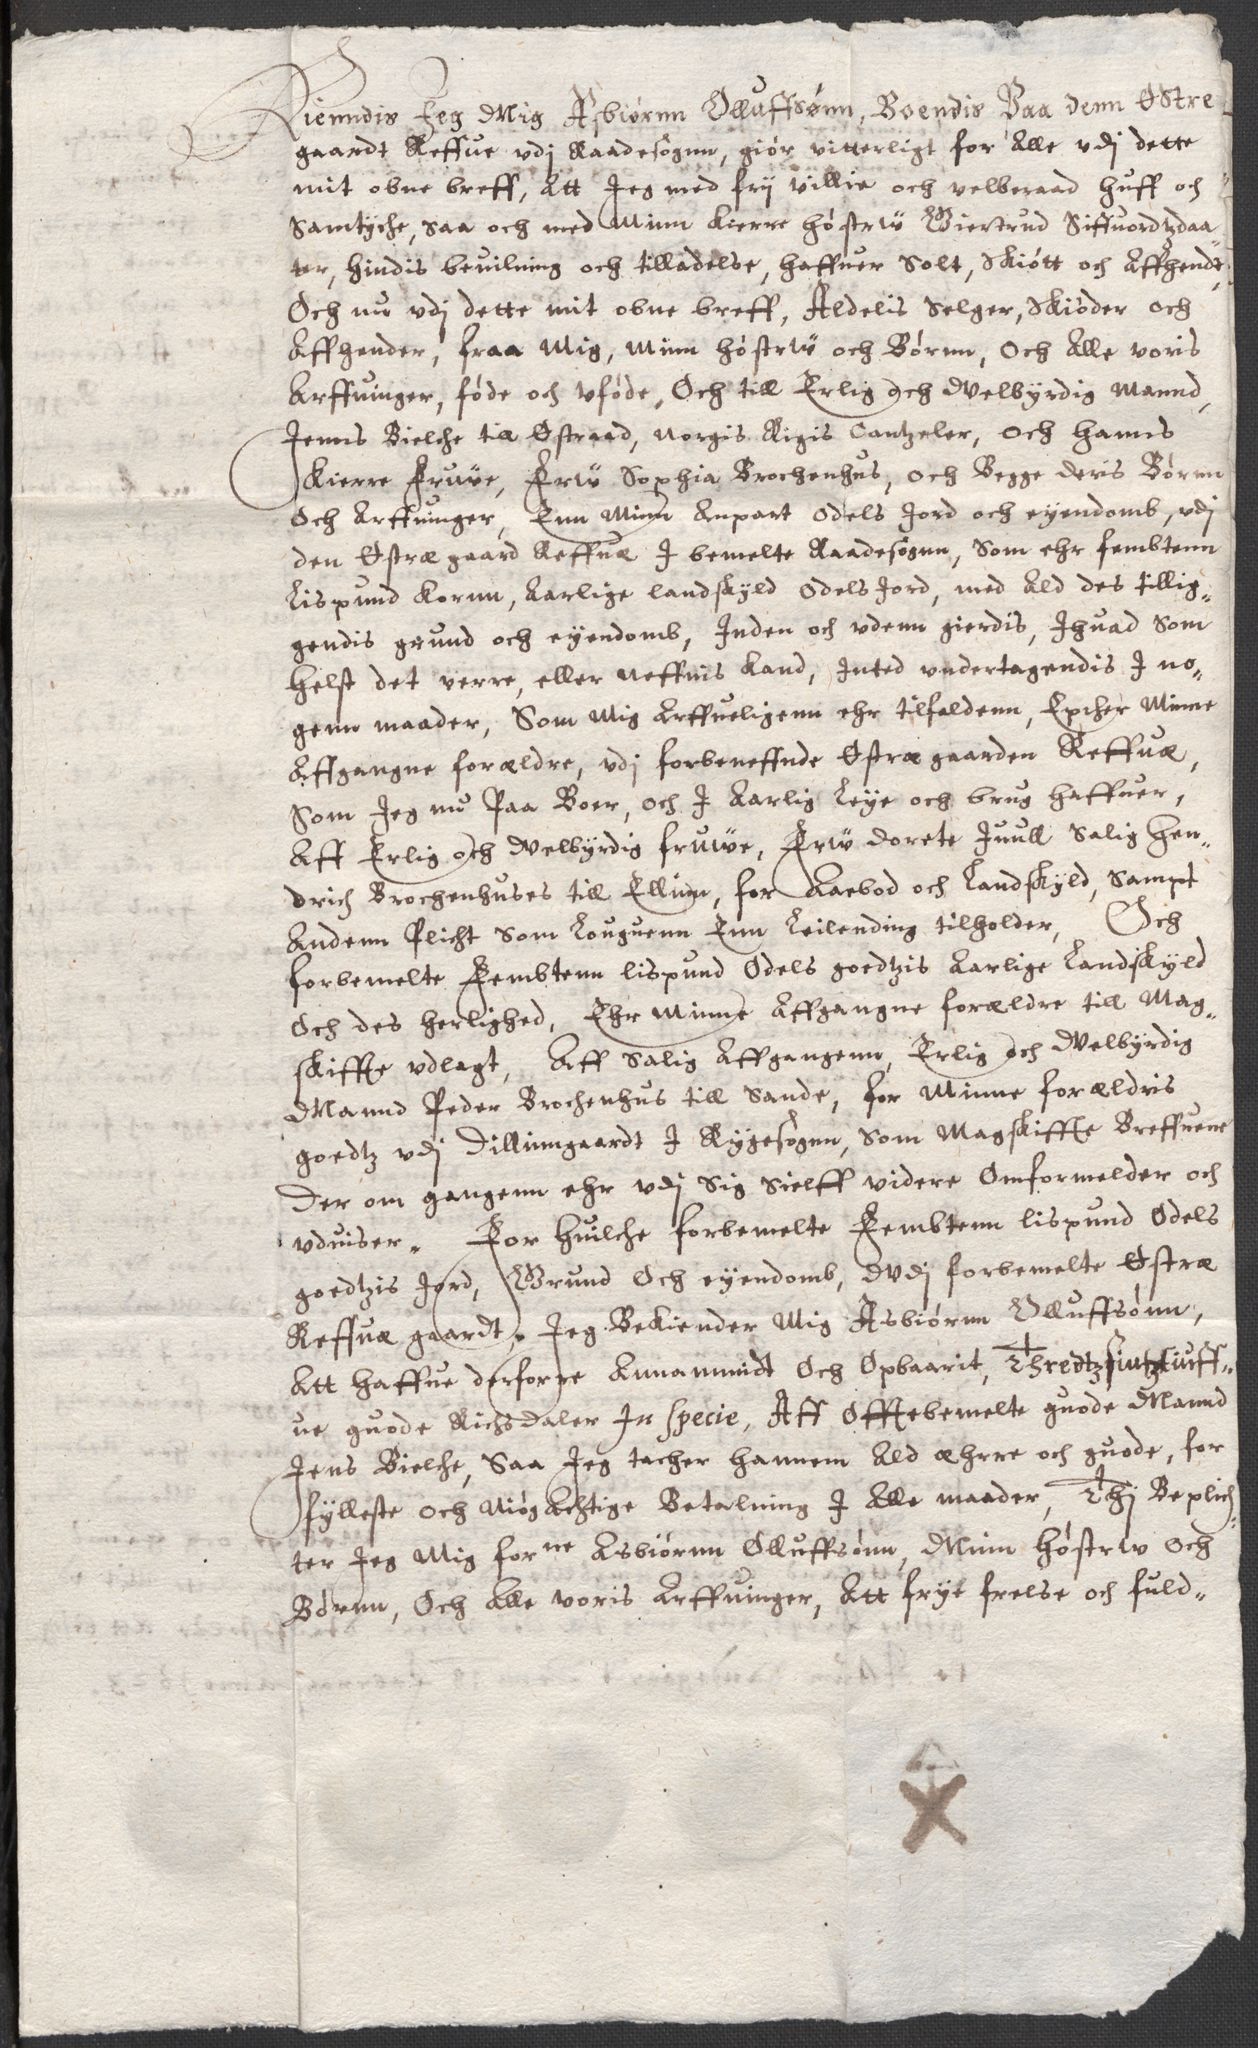 Kienndis Jeg Mig Asbiørnn Olluffsønn, Boendis Paa denn Østre
gaardt Reffue vdj Raadesognn, giør vitterligt for Alle vdj dette
mit obne breff, Att Jeg med frij villie och velberaad huff och
Samtyche, Saa och med Minn kierre høstrw Giertrud Siffuordtzdaa
ter, hindis beuilning och tilladelse, haffuer Solt, Skiøtt och Affhendt,
Och nu vdj dette mit obne breff, Aldelis Selger, Skiøder och
Affhender, fraa Mig, Minn høstrw och Børnn, Och Alle voris
Arffuinger, føde och vføde, Och till Erlig och Welbyrdig Mannd,
Jenns Bielche till Østraad, Norgis Rigis Cantzeler, och hanns
kierre Fruwe, Frw Sophia Brochenhus, och Begge deris Børnn
Och Arffuinger, Enn Minn Anpart Odels Jord och eyendomb, vdj
den Østræ gaard Reffuæ I bemelte Raadesognn, Som ehr fembtenn
Lispund kornn, Aarlige landskyld Odels Jord, med Ald des tillig„
gendis grund och eyendomb, Inden och vdenn gierdis, Ihuad Som
helst det verre, eller neffnis kand, Inted vndertagendis I no„
genn maader, Som Mig Arffueligenn ehr tilfaldenn, Epther Minne
Affgangne forældre, vdj forbeneffnde Østræ gaarden Reffuæ,
Som Jeg nu Paa Boer, och I Aarlig Leye och brug haffuer,
Aff Erlig och Welbyrdig fruwe, Frw Dorete Juull Salig Hen„
drich Brochenhuses till Ellinn, for Aaebod och Landskyld, Sampt
Andenn Plicht Som Louguenn Enn Leilending tilholder, Och
forbemelte Fembtenn lispund Odels goedtzis Aarlige Landskyld
Och des herlighed, Ehr Minne Affgangne forældre till Mag„
skiffte vdlagt, Aff Salig Affgangenn, Erlig och Welbyrdig
Mannd Peder Brochenhus till Sande, for Minne forældris
goedtz vdj Dillinngaardt I Rygesognn, Som Magskiffte Breffuene
Der om gangenn ehr vdj Sig Sielff videre Omformelder och
vduiser. For huilche forbemelte Fembtenn lispund Odels
goedtzis Jord, Grund Och eyendomb, Vdj forbemelte Østræ
Reffuæ gaardt, Jeg Bekiender Mig Asbiørnn Olluffsønn,
Att haffue derforre Annammidt Och Opbaarit, Thredtzsiutzluff„
ue guode Richsdaler In specie, Aff Offtebemelte guode Mannd
Jens Bielche, Saa Jeg tacher hannem Ald æhrre och guode, for
fylleste och Nøgachtige Betalning I Alle maader, Thj Beplich„
ter Jeg Mig forne Asbiørnn Olluffsønn, Minn høstrw Och
Børnn, Och Alle voris Arffuinger, Att frye frelse och fuld„